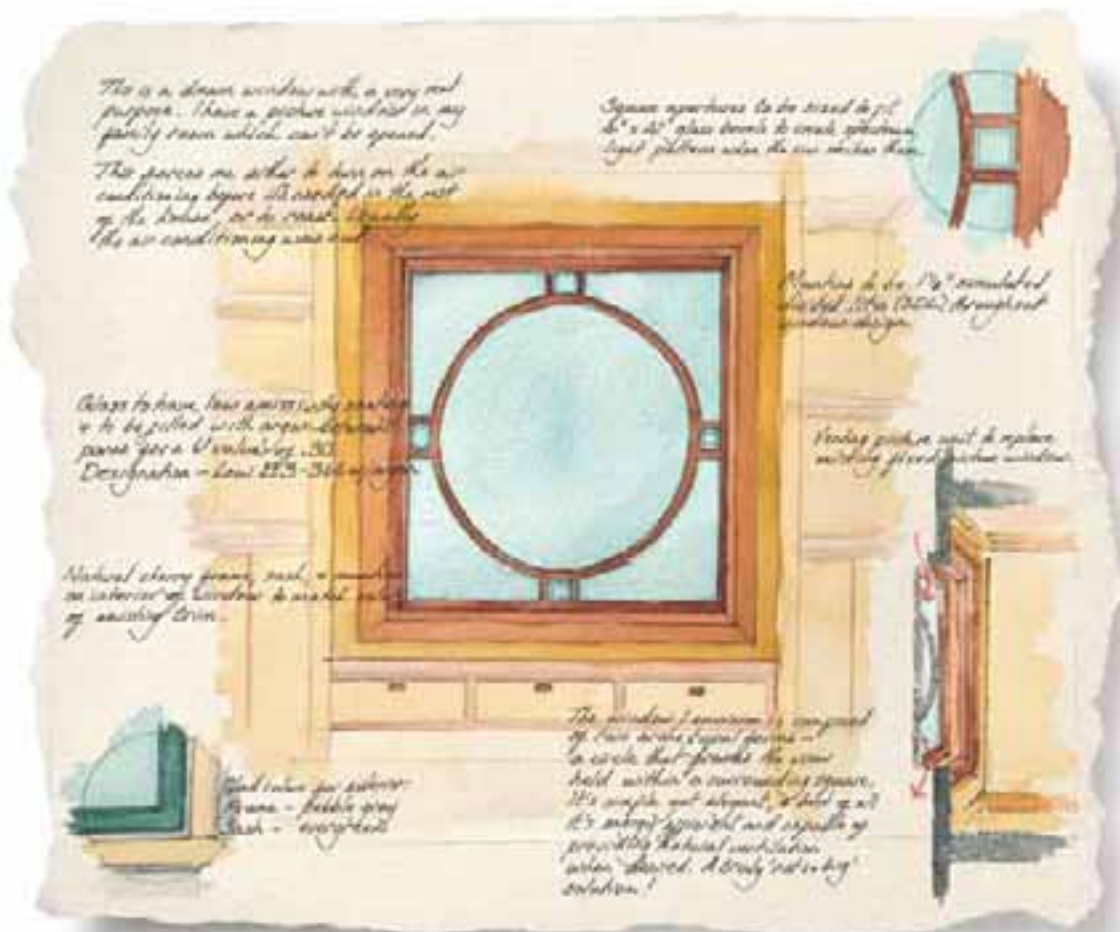 This is a dream window with a very real
purpose. I have a picture window in my
family room which can't be opened.
This forces me either to turn on the air
conditioning before it's needed in the rest
of the house, or to roast. Usually
the air conditioning wins out
Square apertures to be sized to fit
glass bevels to create spectrum
light patterns when the sun catches them.
Muntins to be simulated
divided lites (SDL) throughout
window design.
Glass to have low emissivity coating
& to be filled with argon between
panes for a U value of .30
Designation - LowE
Venting picture unit to replace
existing fixed picture window.
Natural cherry frame, sash, & muntins
on interior of window to match color
of existing trim.
Clad colors for exterior
Frame - Pebble gray
Sash - evergreen
The window I envision is composed
of two
a circle that provides the view
held within a surrounding square.
It's simple yet elegant, & best of all
it's energy efficient and capable of
providing natural ventilation
when desired. A truly
solution!